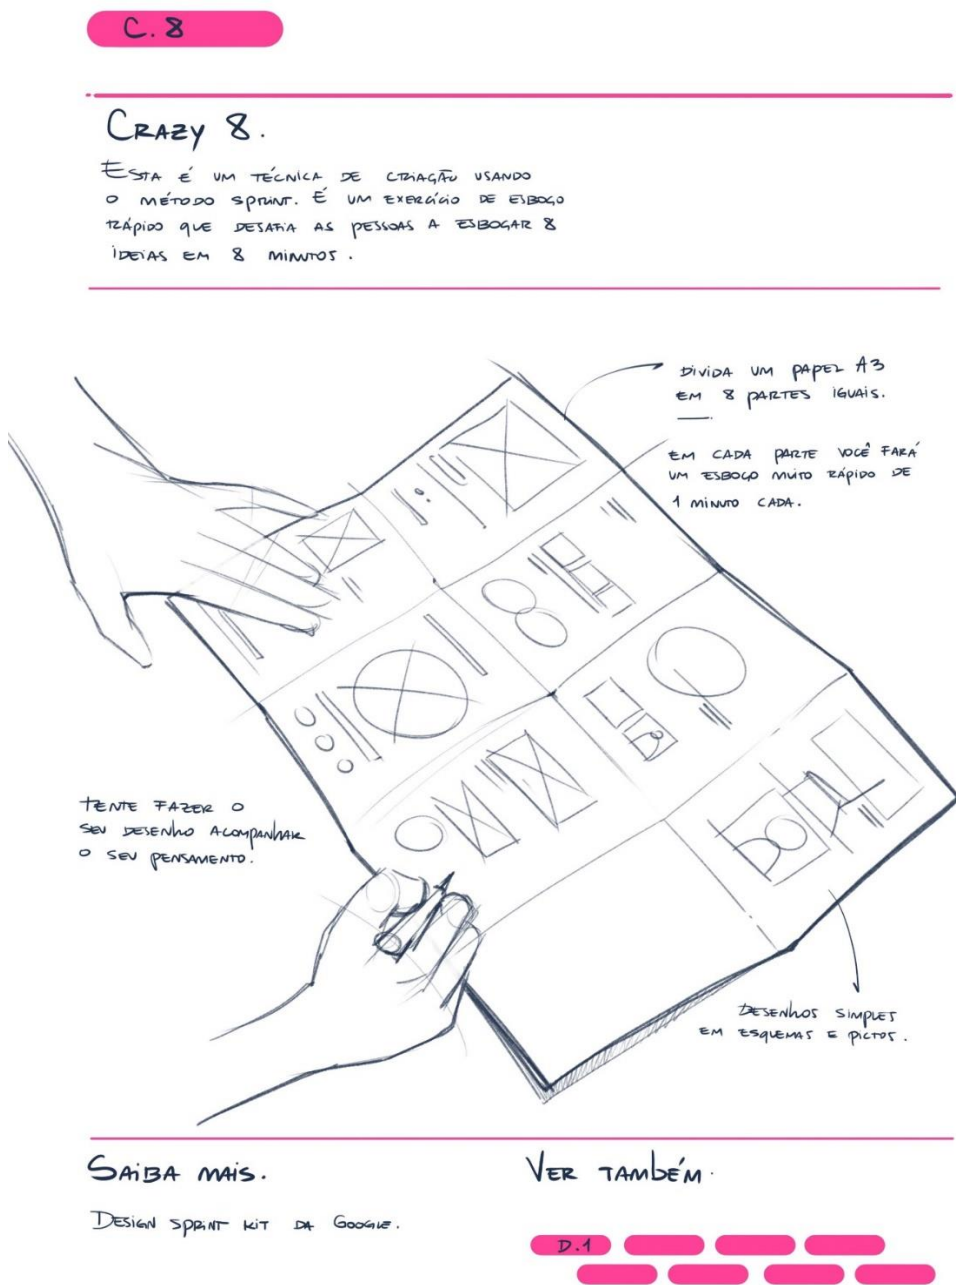 C.8
CRAZY 8.
ESTA É UM TÉCNICA DE CRIAÇÃO USANDO
O MÉTODO SPRINT. É UM EXERCÍCIO DE ESBOÇO
RÁPIDO QUE DESAFIA AS PESSOAS A ESBOÇAR 8
IDEIAS EM 8 MINUTOS.
DIVIDA UM PAPEL A3
EM 8 PARTES IGUAIS.
EM CADA PARTE VOCÊ FARÁ
UM ESBOÇO MUITO RÁPIDO DE
1 MINUTO CADA.
TENTE FAZER O
SEU DESENHO ACOMPANHAR
O SEU PENSAMENTO.
DESENHOS SIMPLES
EM ESQUEMAS E PICTOS.
SAIBA MAIS.
VER TAMBÉM.
DESIGN SPRINT KIT DA GOOGLE.
D.1